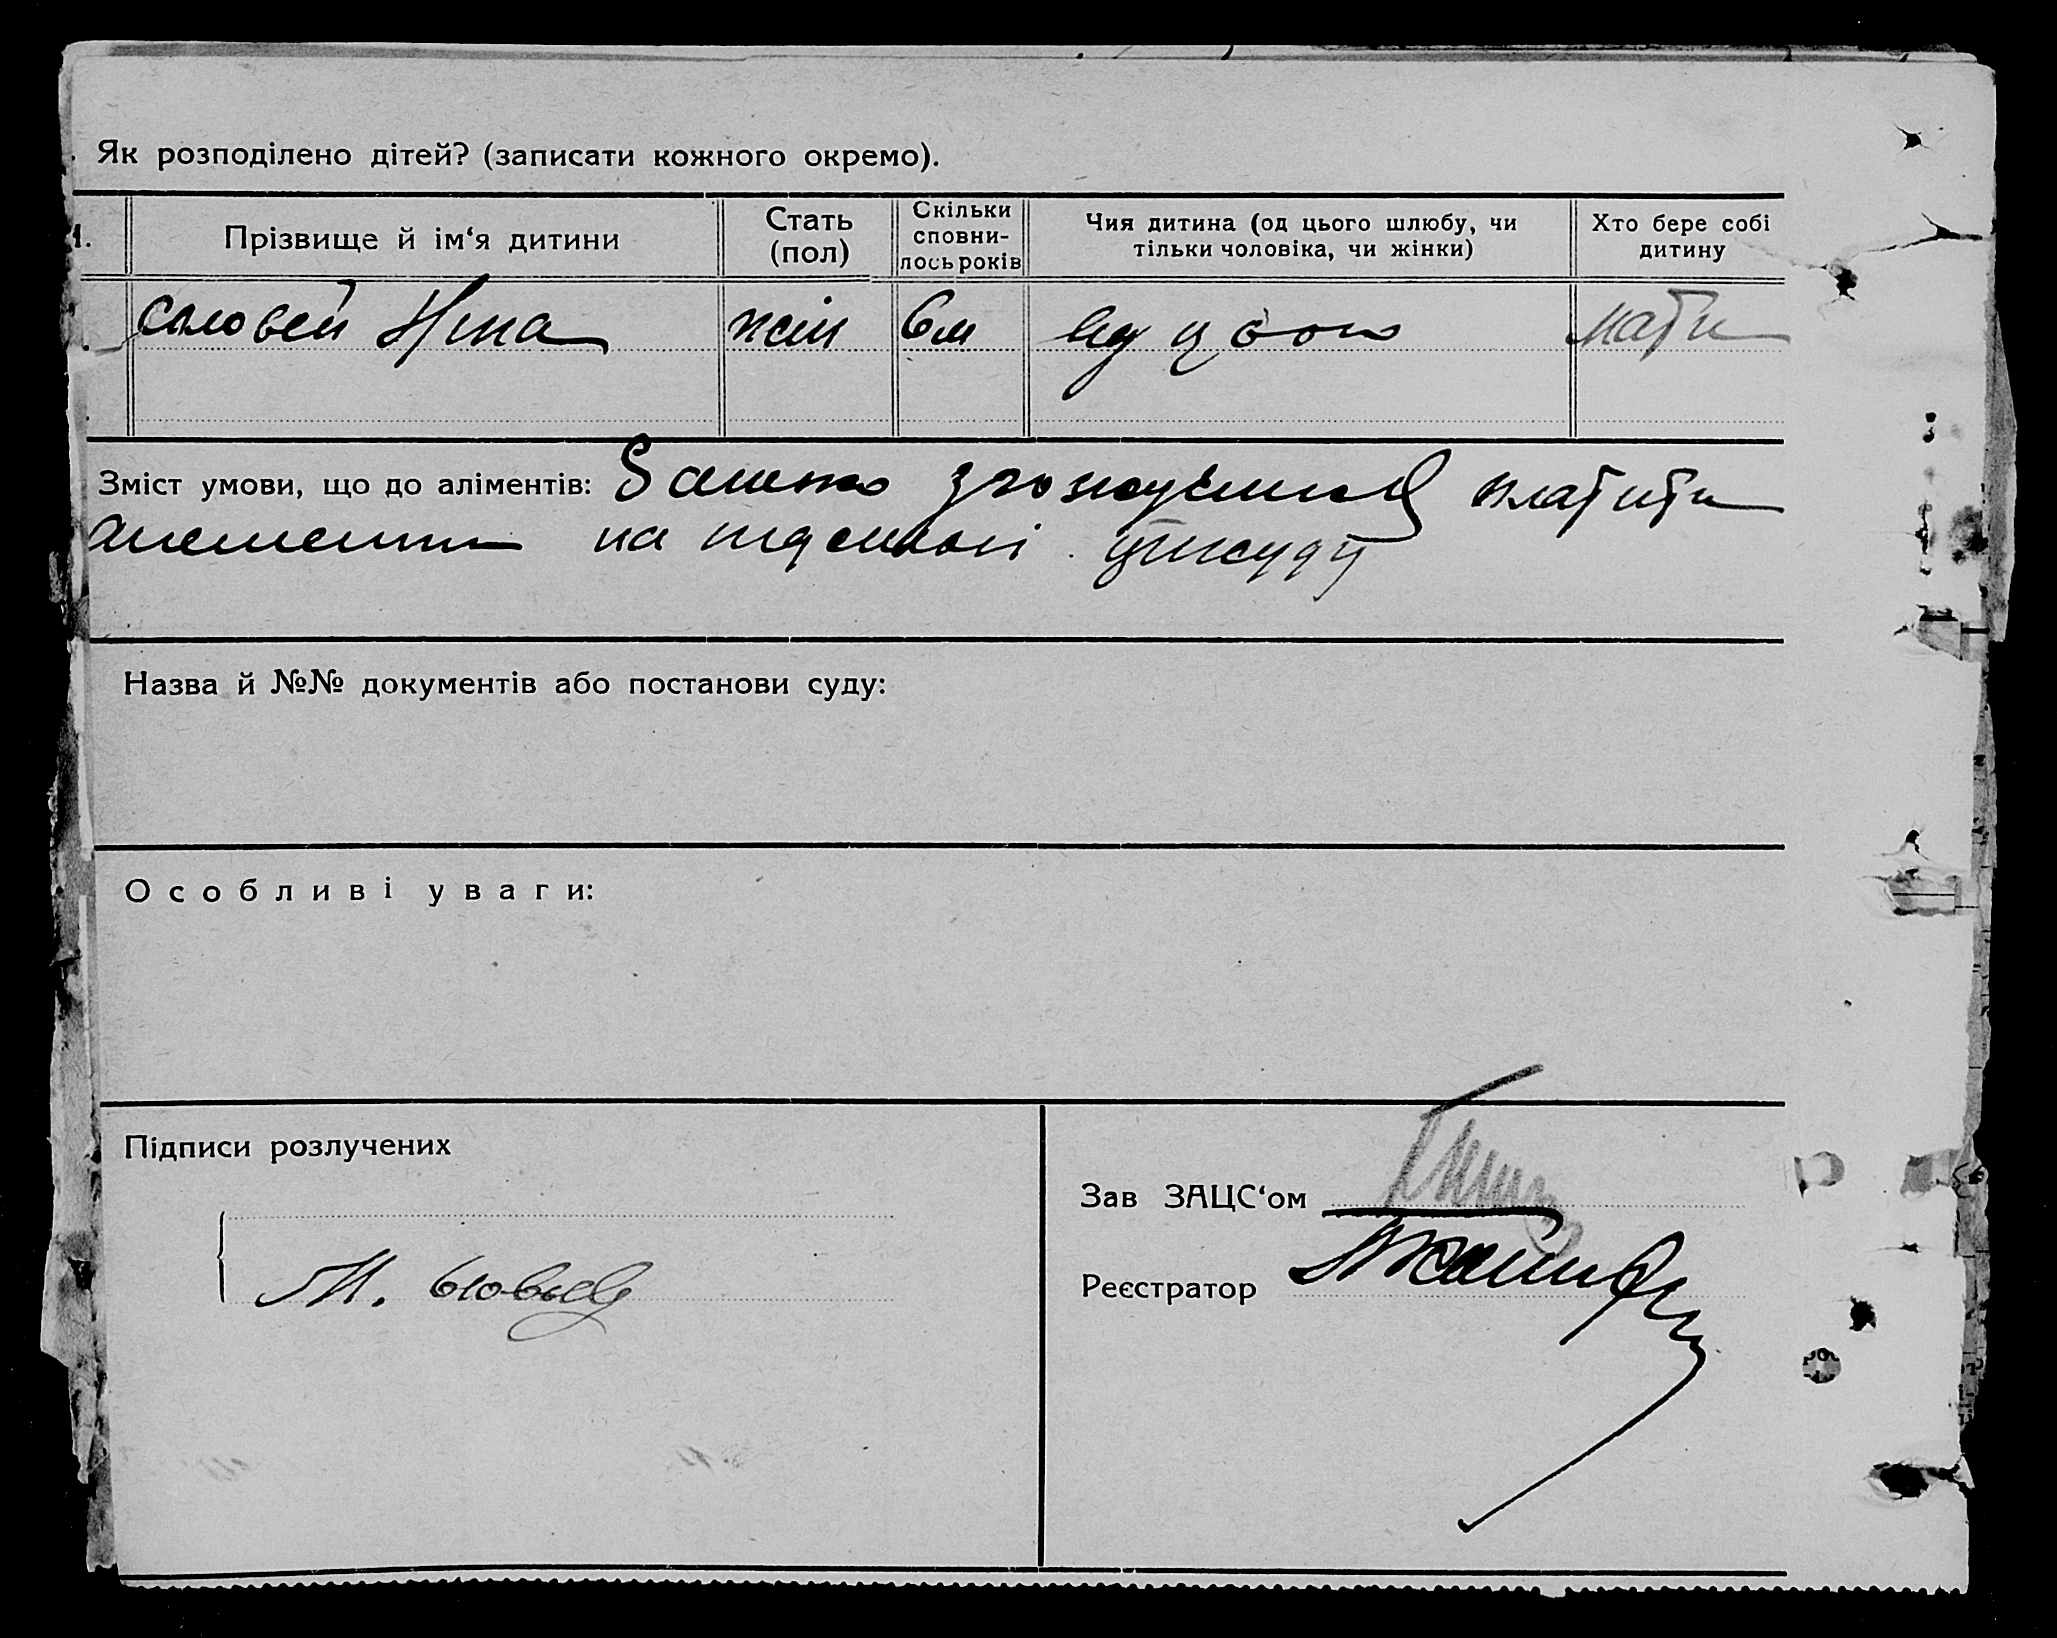 Як розподілено дітей? (записати кожного окремо).
Прізвище й ім‘я дитини
Стать (пол)
Скільки сповни-лось років
Чия дитина (од цього шлюбу, чи тільки чоловіка, чи жінки)
Хто бере собі дитину
Соловей Ніна жін 6м від цього мати
Зміст умови, що до аліментів: Батько згожується платити
алементи на підставі присуду
Назва й №№ документів або постанови суду:
Особливі уваги:
Підписи розлучених
Зав ЗАЦС‘ом
М.
Реєстратор